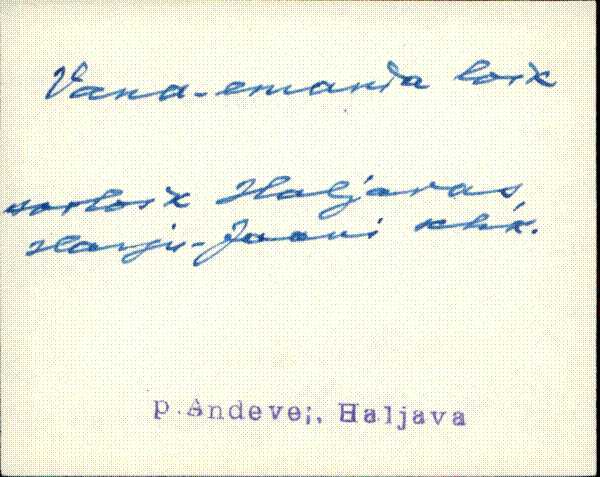 Vana-emanda loik
soo loik Haljavas
Harju-Jaani khk.
p.Andevei, Haljava